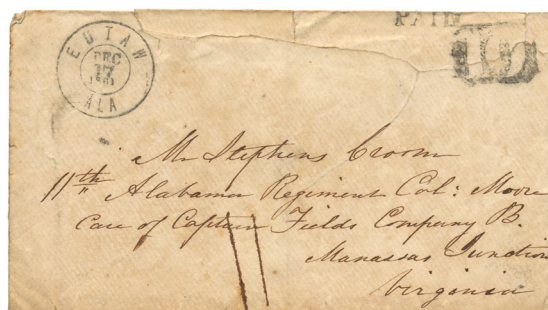 EUTAW
DEC
17
1861
ALA
PAID
10
Mr Stephens Croom
11th Alabama Regiment Col: Moore
Care of Captain Fields Company B.
Manassas Junction
Virginia